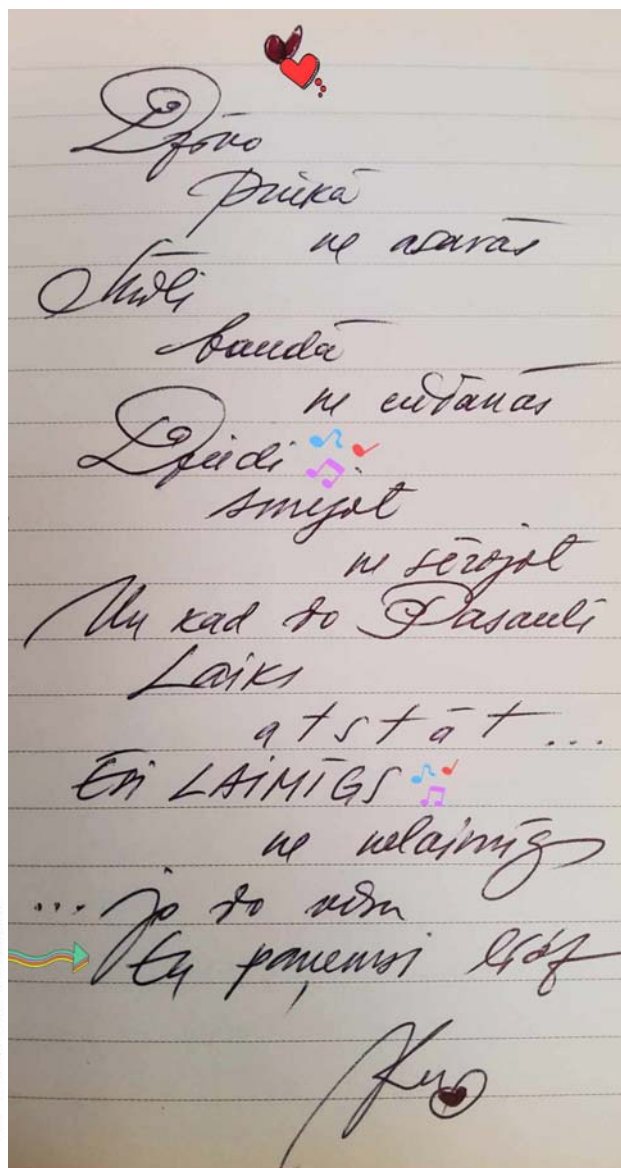 Dzīvo
priekā
ne asarās
Mīli
baudā
ne ciešanās
Dziedi
smejot
ne sērojot
Un kad šo Pasauli
Laiks
atstāt...
Esi LAIMĪGS
ne nelaimīgs
... Jo šo visu
Tu paņemsi līdz